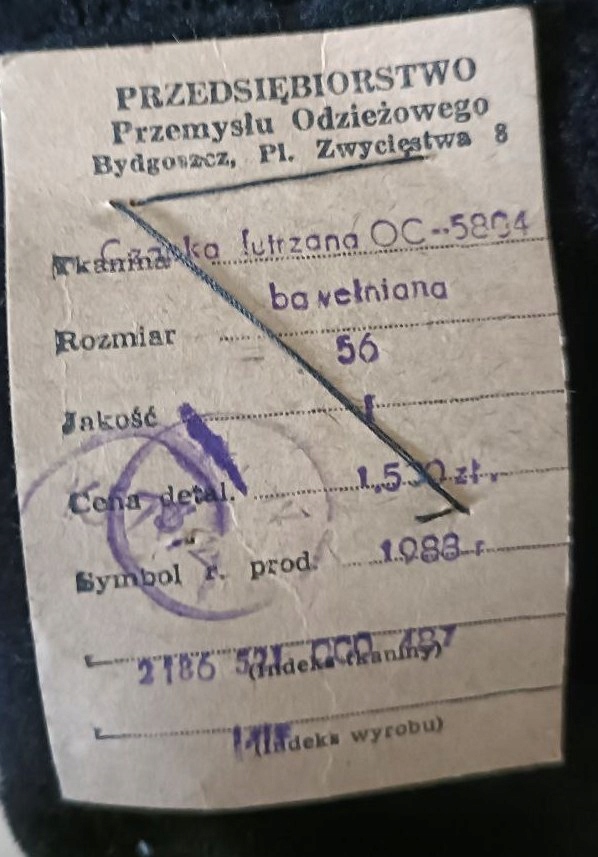 PRZEDSIĘBIORSTWO
Przemysłu Odzieżowego
Bydgoszcz, Pl. Zwycięstwa 8
Tkanina Czapka futrzana OC-5804
bawełniana
Rozmiar 56
Jakość I
Cena detal. 1.500 zł.
Symbol r. prod. 1988 r
2186 521 000 487
(Indeks tkaniny)
(Indeks wyrobu)